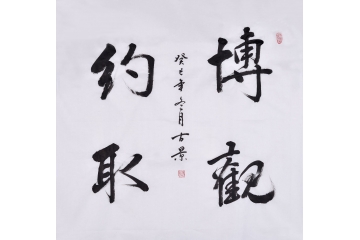 博觀
約取
癸巳年冬月古景